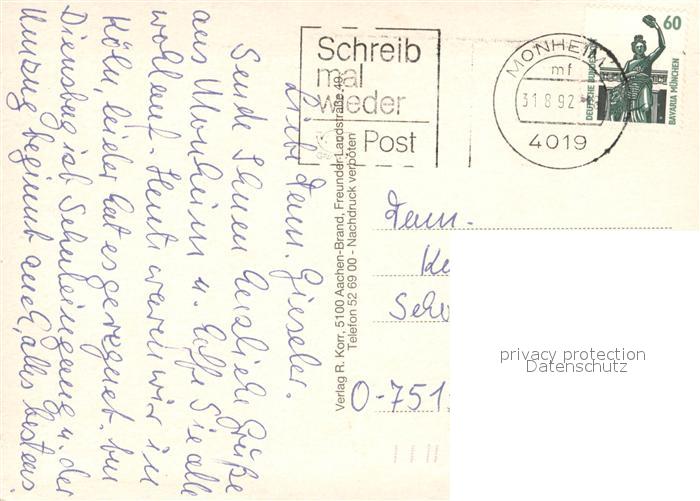 Liebe Fam. Gieseler.
Sende Ihnen herzliche Grüße
aus Monheim u. hoffe Sie alle
wohlauf. Heute waren wir in
Köln leider hat es geregnet. bun
Dienstag ist Schuleingang u. der
Umzug beginnt auch, alles bestens.
Verlag R. Korr, 5100 Aachen-Brand, Freunder Landstraße 49
Telefon 52 69 00 - Nachdruck verboten
Schreib
mal
wieder
Post
MONHEIM
mf
31.8.92
4019
60
DEUTSCHE BUNDESPOST
BAVARIA MÜNCHEN
Fam.
O-751
privacy protection
Datenschutz